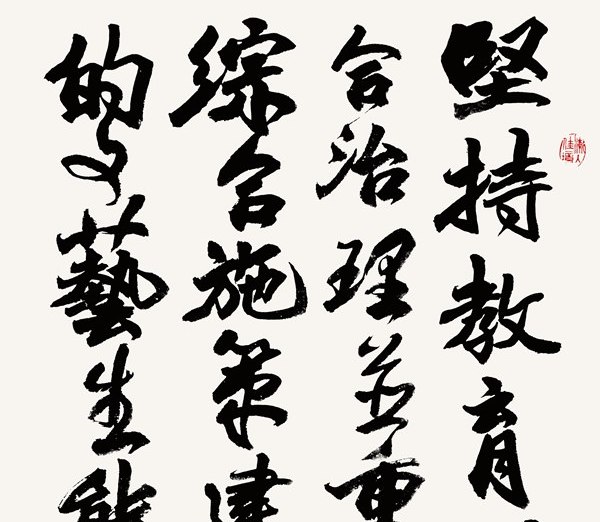 堅持教育
合治理並重
綜合施策建
的文藝生態